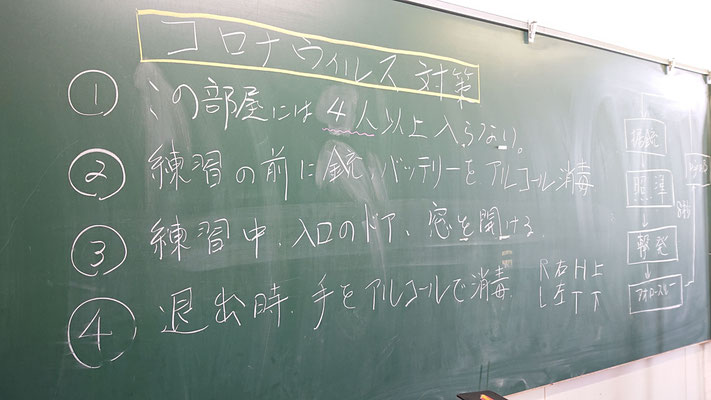 コロナウィルス対策
① この部屋には4人以上入らない。
② 練習の前に銃、バッテリーをアルコール消毒
③ 練習中、入口のドア、窓を開ける。
④ 退出時、手をアルコールで消毒
R右H上
L左T下
据銃
照準
撃発
フォロースルー